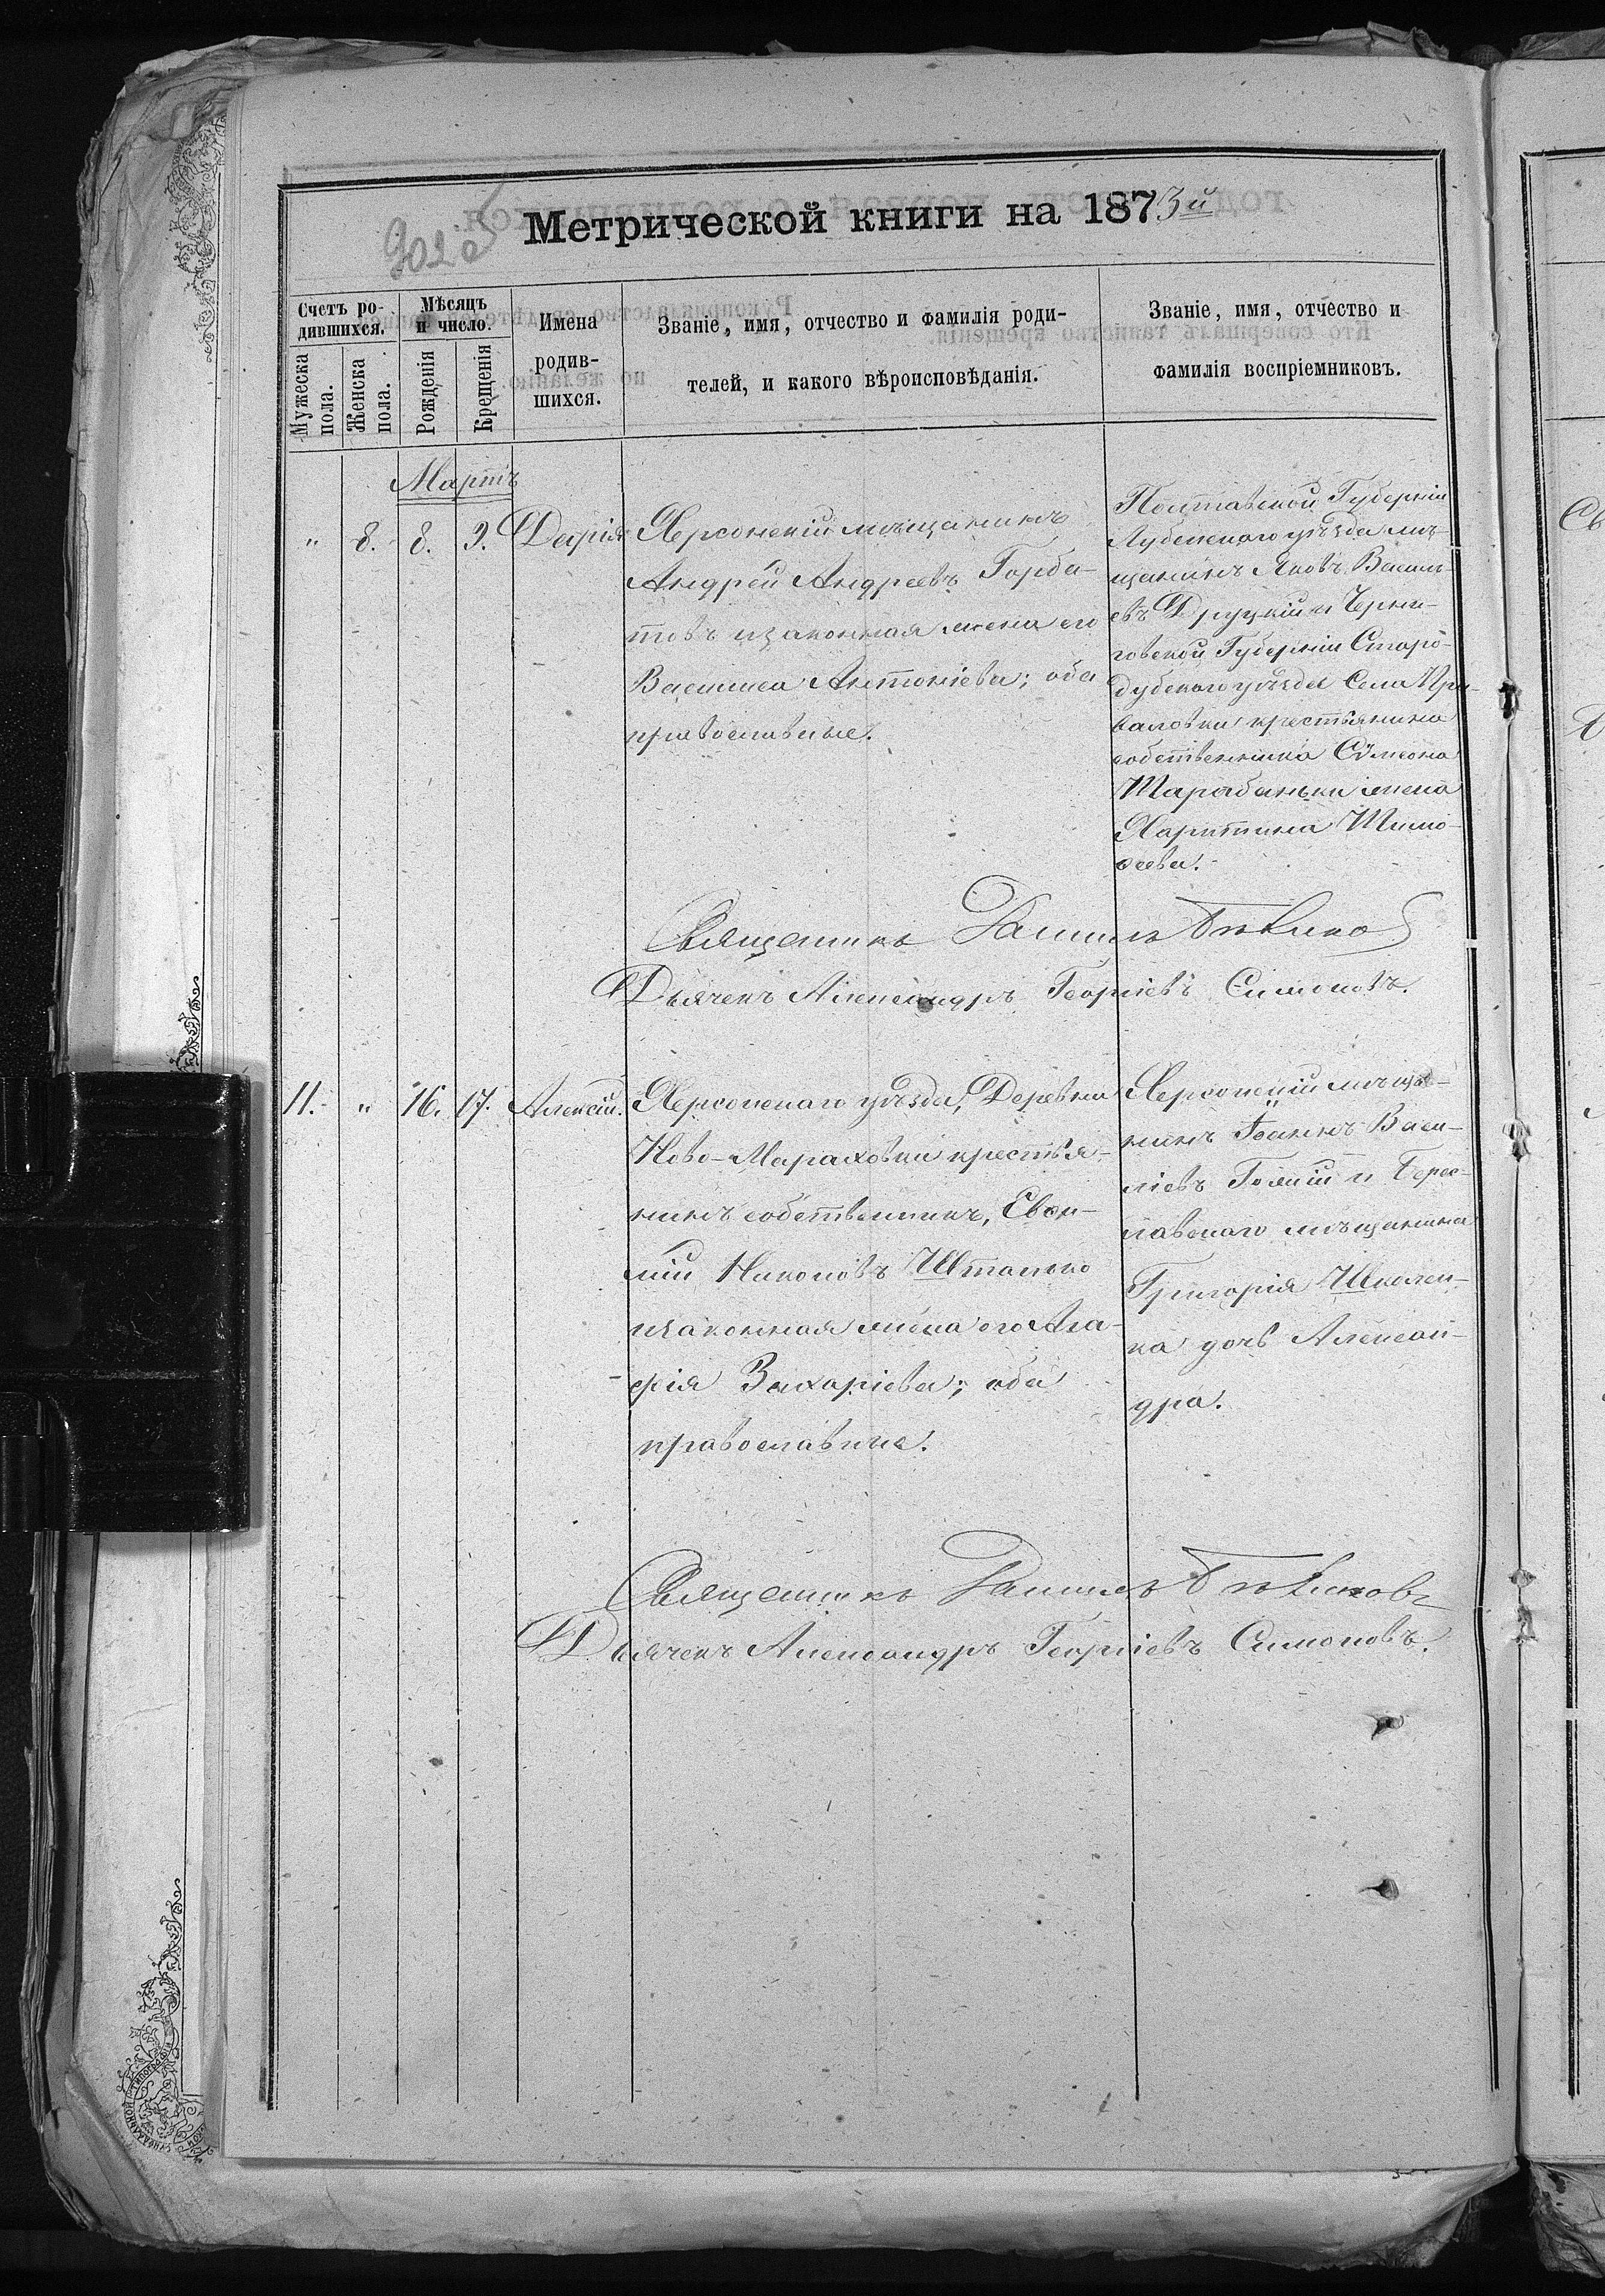 902 об
Метрической книги на 1873й
Счетъ ро-
дившихся.
Мужеска
пола.
Женска
пола.
Мѣсяцъ
и число.
Рожденія
Крещенія
Имена
родив-
шихся.
Званіе, имя, отчество и фамилія роди-
телей, и какого вѣроисповѣданія.
Званіе, имя, отчество и
фамилія воспріемниковъ.
Мартъ
" 8. 8. 9. Дарія
Херсонскій мѣщанинъ
Андрей Андреевъ Горба-
товъ и законная жена его
Василиса Антоніева; оба
православные.
Полтавской Губерніи
Лубенскаго уѣзда мѣ-
щанинъ Яковъ Василь-
евъ Друцкій и Черни-
говской Губерніи Старо-
дубскаго уѣзда Села При-
валовки крестьянина
собственника Сѵмеона
Тарабаньки жена
Харитина Тимо-
ѳеева.
Священникъ Даніилъ Бѣликов
Дьячекъ Александръ Георгіевъ Симоновъ.
11. " 16. 17. Алексій.
Херсонскаго уѣзда, Деревни
Ново-Мараховки крестья-
нинъ собственникъ, Евѳи-
мій Никоновъ Шталько
и законная жена его Ага-
фія Захаріева; оба
православные.
Херсонскій мѣща-
нинъ Іоаннъ Васи-
ліевъ Голый и Берес-
лавскаго мѣщанина
Григорія Школен-
ка дочь Алексан-
дра.
Священникъ Даніилъ Бѣликовъ
Дьячекъ Александръ Георгіевъ Симоновъ.